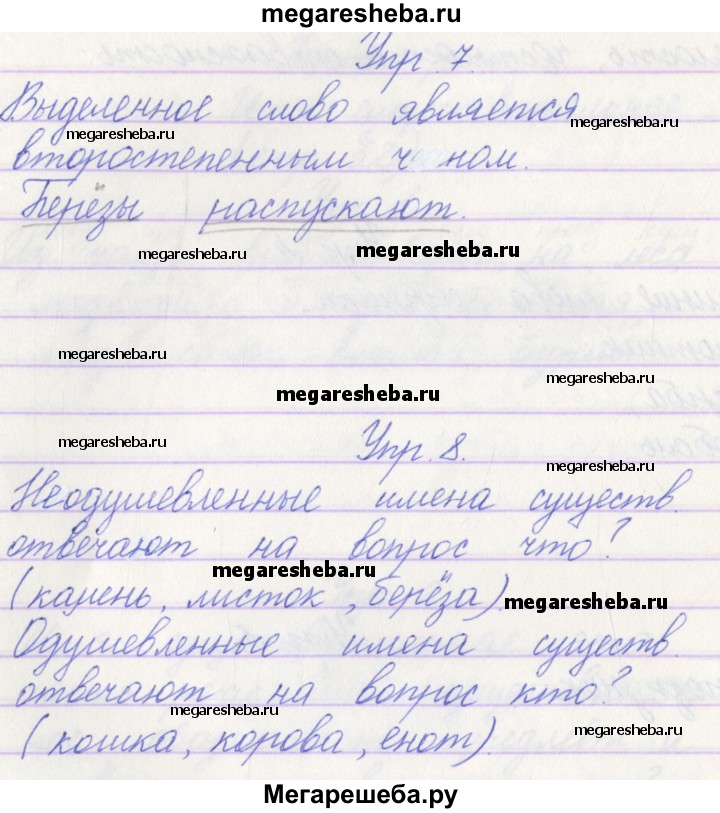 megaresheba.ru
Упр. 7.
Выделенное слово является
megaresheba.ru
megaresheba.ru
второстепенным членом.
Берёзы распускают.
megaresheba.ru
megaresheba.ru
megaresheba.ru
megaresheba.ru
megaresheba.ru
Упр. 8.
megaresheba.ru
megaresheba.ru
Неодушевленные имена существ.
отвечают на вопрос что?
megaresheba.ru
(камень, листок, берёза).
megaresheba.ru
Одушевленные имена существ.
отвечают на вопрос кто?
megaresheba.ru
megaresheba.ru
(кошка, корова, енот).
Мегарешеба.ру